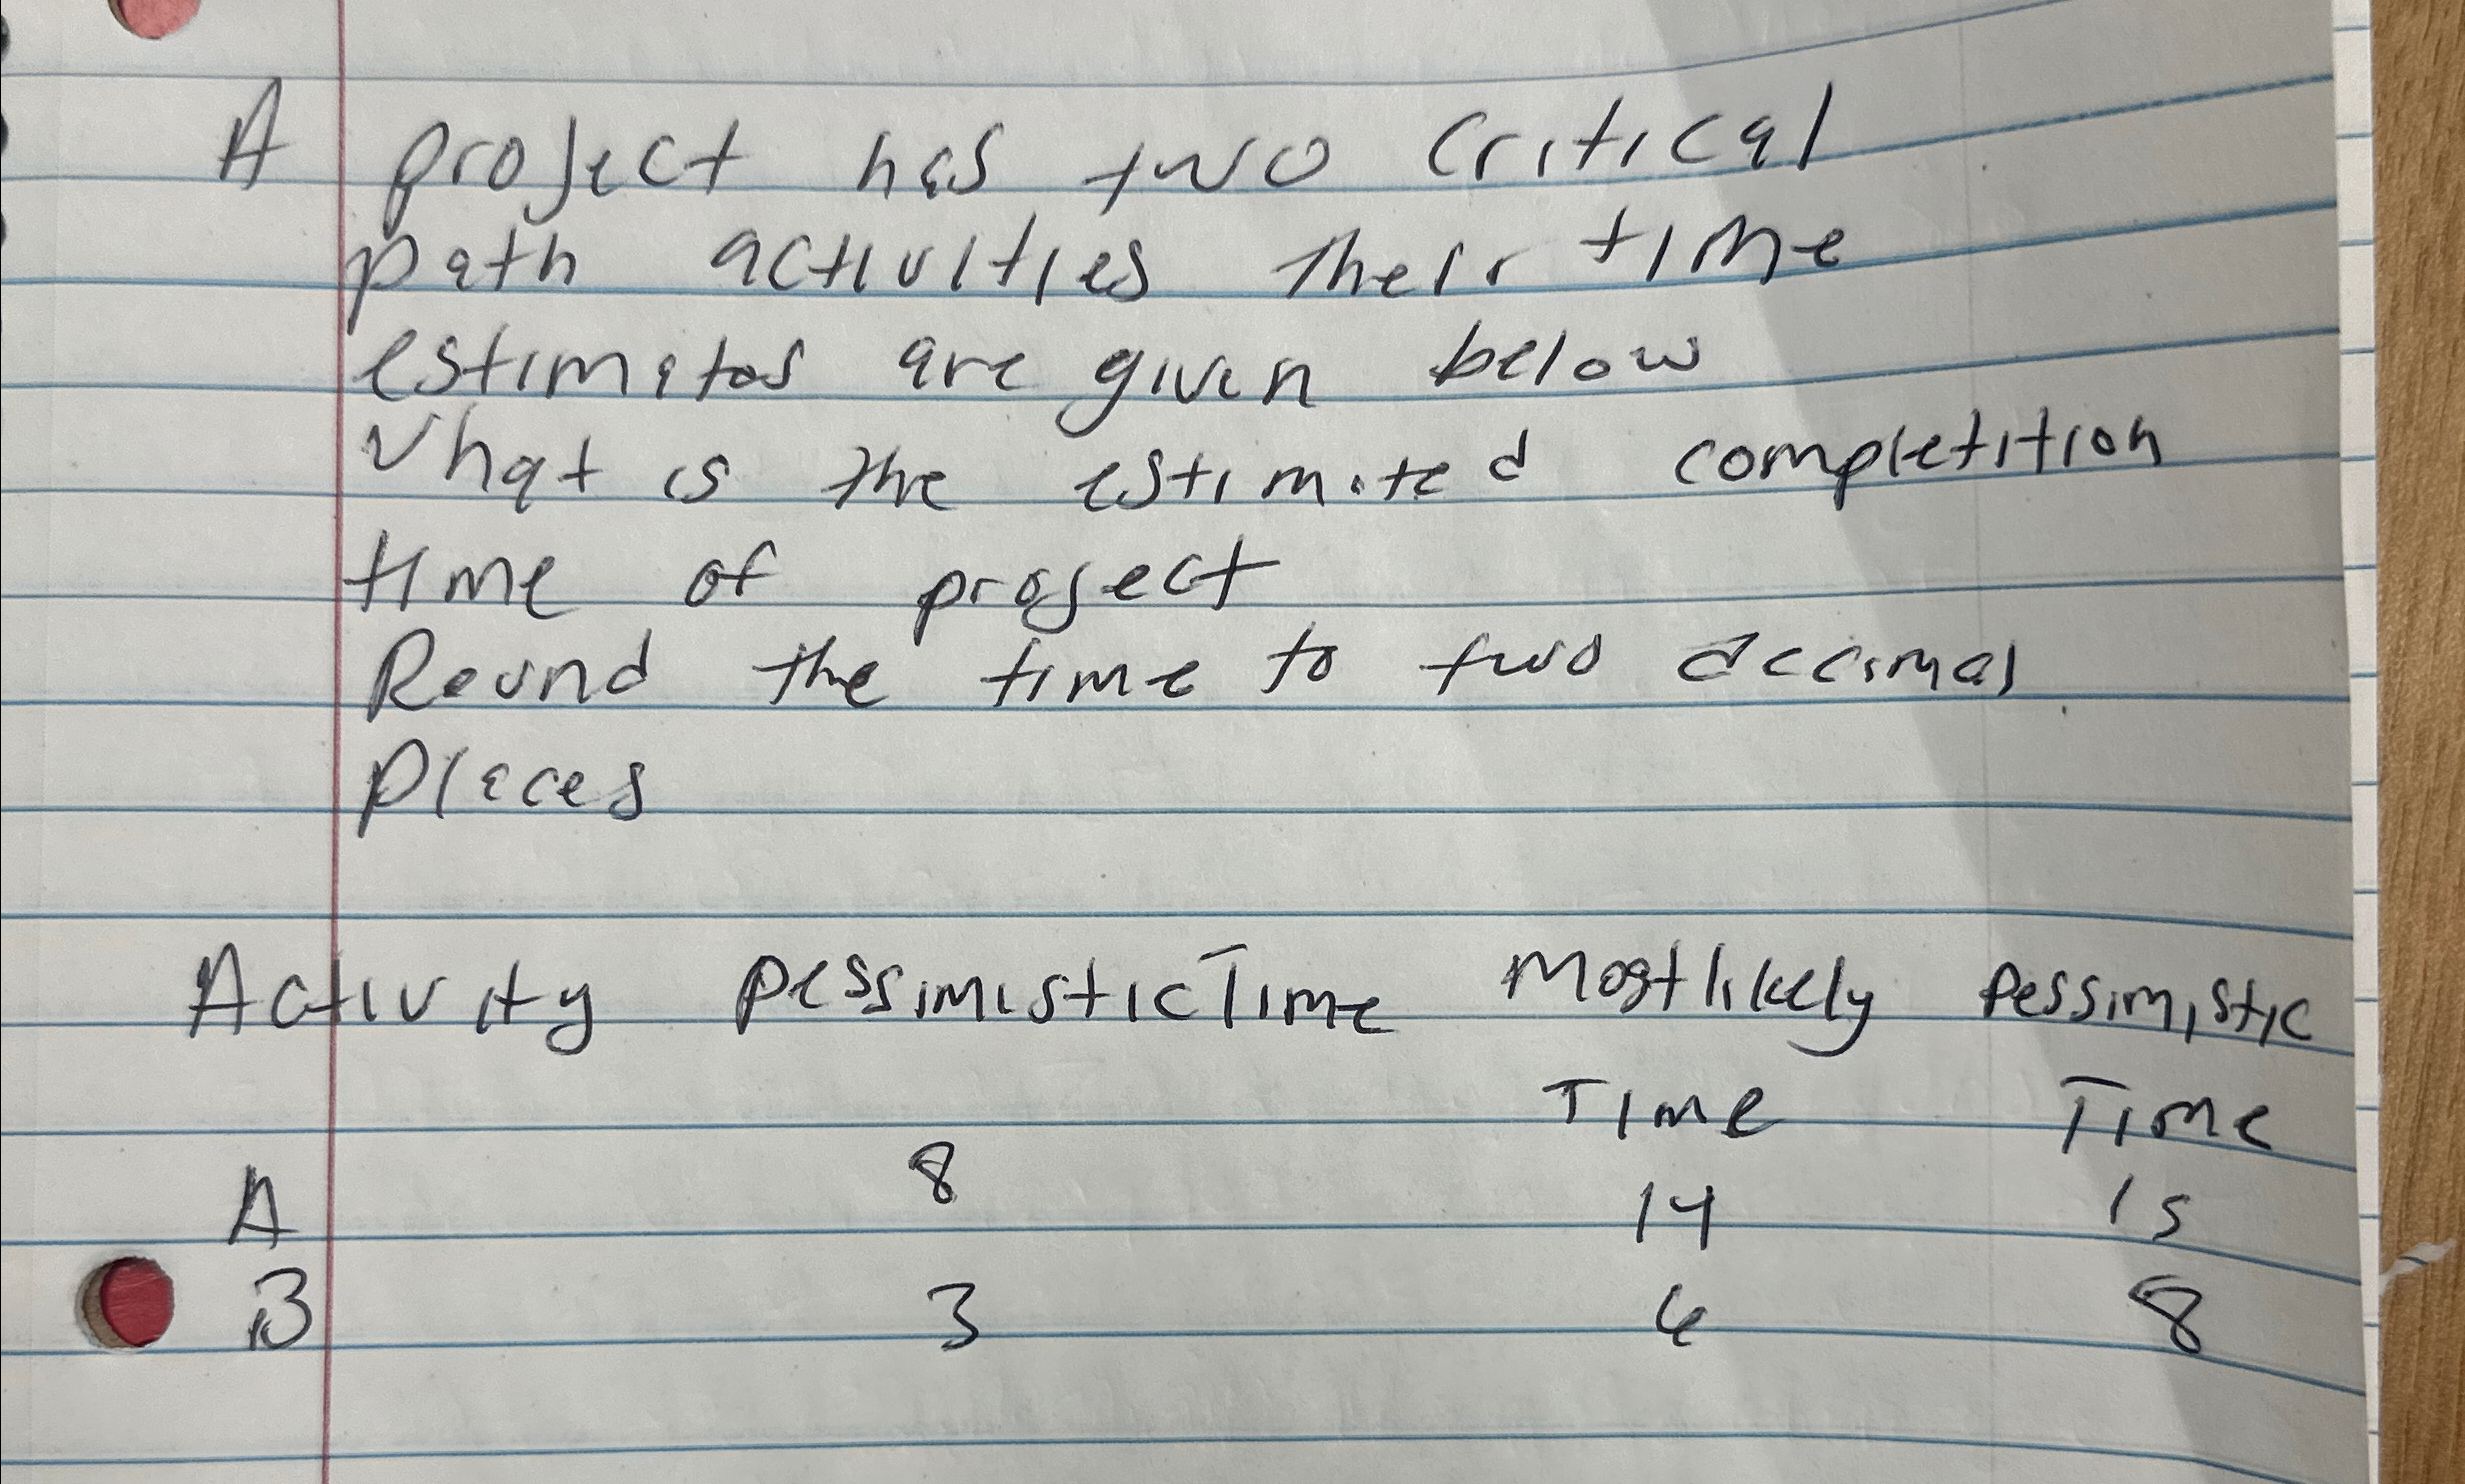 A project has two critical
path activities their time
estimates are given below
What is the estimated completition
time of project
Round the time to two decimal
places
Activity PessimisticTime Mostlikely Pessimistic
Time Time
A 8 14 15
B 3 6 8